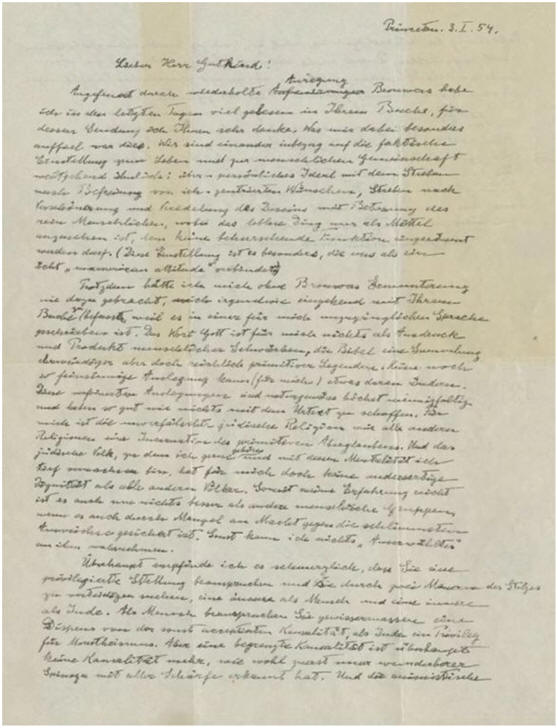 Princeton. 3. I. 54.
Lieber Herr Gutkind!
Anregung
Angefeuert durch wiederholte Brouwers habe
ich in den letzten Tagen viel gelesen in Ihrem Buche, für
dessen Sendung ich Ihnen sehr danke. Was mir dabei besonders
auffiel war dies. Wir sind einander inbezug auf die faktische
Einstellung zum Leben und zur menschlichen Gemeinschaft
weitgehend ähnlich: persönliches Ideal mit dem Streben
nach Befreiung von ich-zentrierten Wünschen, Streben nach
Verschönerung und Veredelung des Daseins mit Betonung des
rein Menschlichen, wobei das leblose Ding nur als Mittel
anzusehen ist, dem keine beherrschende Funktion eingeräumt
werden darf. (Diese Einstellung ist es besonders, die uns als ein
echt „unamerican attitude" verbindet)
Trotzdem hätte ich mich ohne Brouwers Ermunterung
nie dazu gebracht, mich irgendwie eingehend mit Ihrem
Buche zu befassen, weil es in einer für mich unzugänglichen Sprache
geschrieben ist. Das Wort Gott ist für mich nichts als Ausdruck
und Produkt menschlicher Schwächen, die Bibel eine Sammlung
ehrwürdiger aber doch reichlich primitiver Legenden. Keine noch
so feinsinnige Auslegung kann (für mich) etwas daran ändern.
Diese verfeinerten Auslegungen sind naturgemäss höchst mannigfaltig
und haben so gut wie nichts mit dem Urtext zu schaffen. Für
mich ist die unverfälschte jüdische Religion wie alle anderen
Religionen eine Incarnation des primitiven Aberglaubens. Und das
jüdische Volk, zu dem ich gern gehöre und mit dessen Mentalität ich
tief verwachsen bin, hat für mich doch keine andersartige
Dignität als alle anderen Völker. Soweit meine Erfahrung reicht
ist es auch um nichts besser als andere menschliche Gruppen,
wenn es auch durch Mangel an Macht gegen die schlimmsten
Auswüchse gesichert ist. Sonst kann ich nichts „Auserwähltes"
an ihm wahrnehmen.
Überhaupt empfinde ich es schmerzlich, dass Sie eine
privilegierte Stellung beanspruchen und sie durch zwei Mauern des Stolzes
zu verteidigen suchen, eine äussere als Mensch und eine innere
als Jude. Als Mensch beanspruchen Sie gewissermassen einen
Dispens von der sonst acceptierten Kausalität, als Jude ein Privileg
für Monotheismus. Aber eine begrenzte Kausalität ist überhaupt
keine Kausalität mehr, wie wohl zuerst unser wunderbarer
Spinoza mit aller Schärfe erkannt hat. Und die animistische